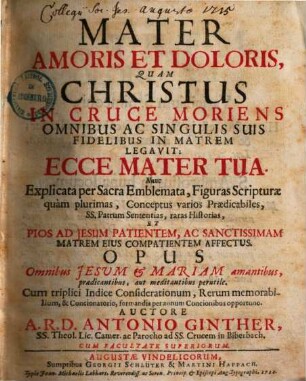 Collegii Soc. Jes. Augustæ 1715
MATER
AMORIS ET DOLORIS,
QUAM
CHRISTUS
IN CRUCE MORIENS
OMNIBUS AC SINGULIS SUIS
FIDELIBUS IN MATREM
LEGAVIT;
ECCE MATER TUA.
Nunc
Explicata per Sacra Emblemata, Figuras Scripturæ
quàm plurimas, Conceptus varios Prædicabiles,
SS. Patrum Sententias, raras Historias,
PIOS AD JESUM PATIENTEM, AC SANCTISSIMAM
MATREM EJUS COMPATIENTEM AFFECTUS.
OPUS
Omnibus JESUM & MARIAM amantibus,
prædicantibus, aut meditantibus perutile.
Cum triplici Indice Considerationum, Rerum memorabi-
lium, & Concionatorio, formandis per annum Concionibus opportuno.
AUCTORE
A.R.D. ANTONIO GINTHER,
SS. Theol. Lic. Camer. ac Parocho ad SS. Crucem in Biberbach.
CUM FACULTATE SUPERIORUM.
AUGUSTÆ VINDELICORUM,
Sumptibus GEORGII SCHLÜTER & MARTINI HAPPACH.
Typis Joann. Michaelis Labhart,